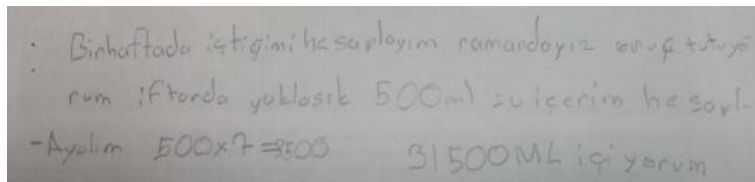 : Birhaftada içtiğimi hesaplayım ramandayız oruç tutuyo
rum iftarda yaklaşık 500ml su içerim hesapl
-Ayalım 500x7=3500 31500ML içiyorum